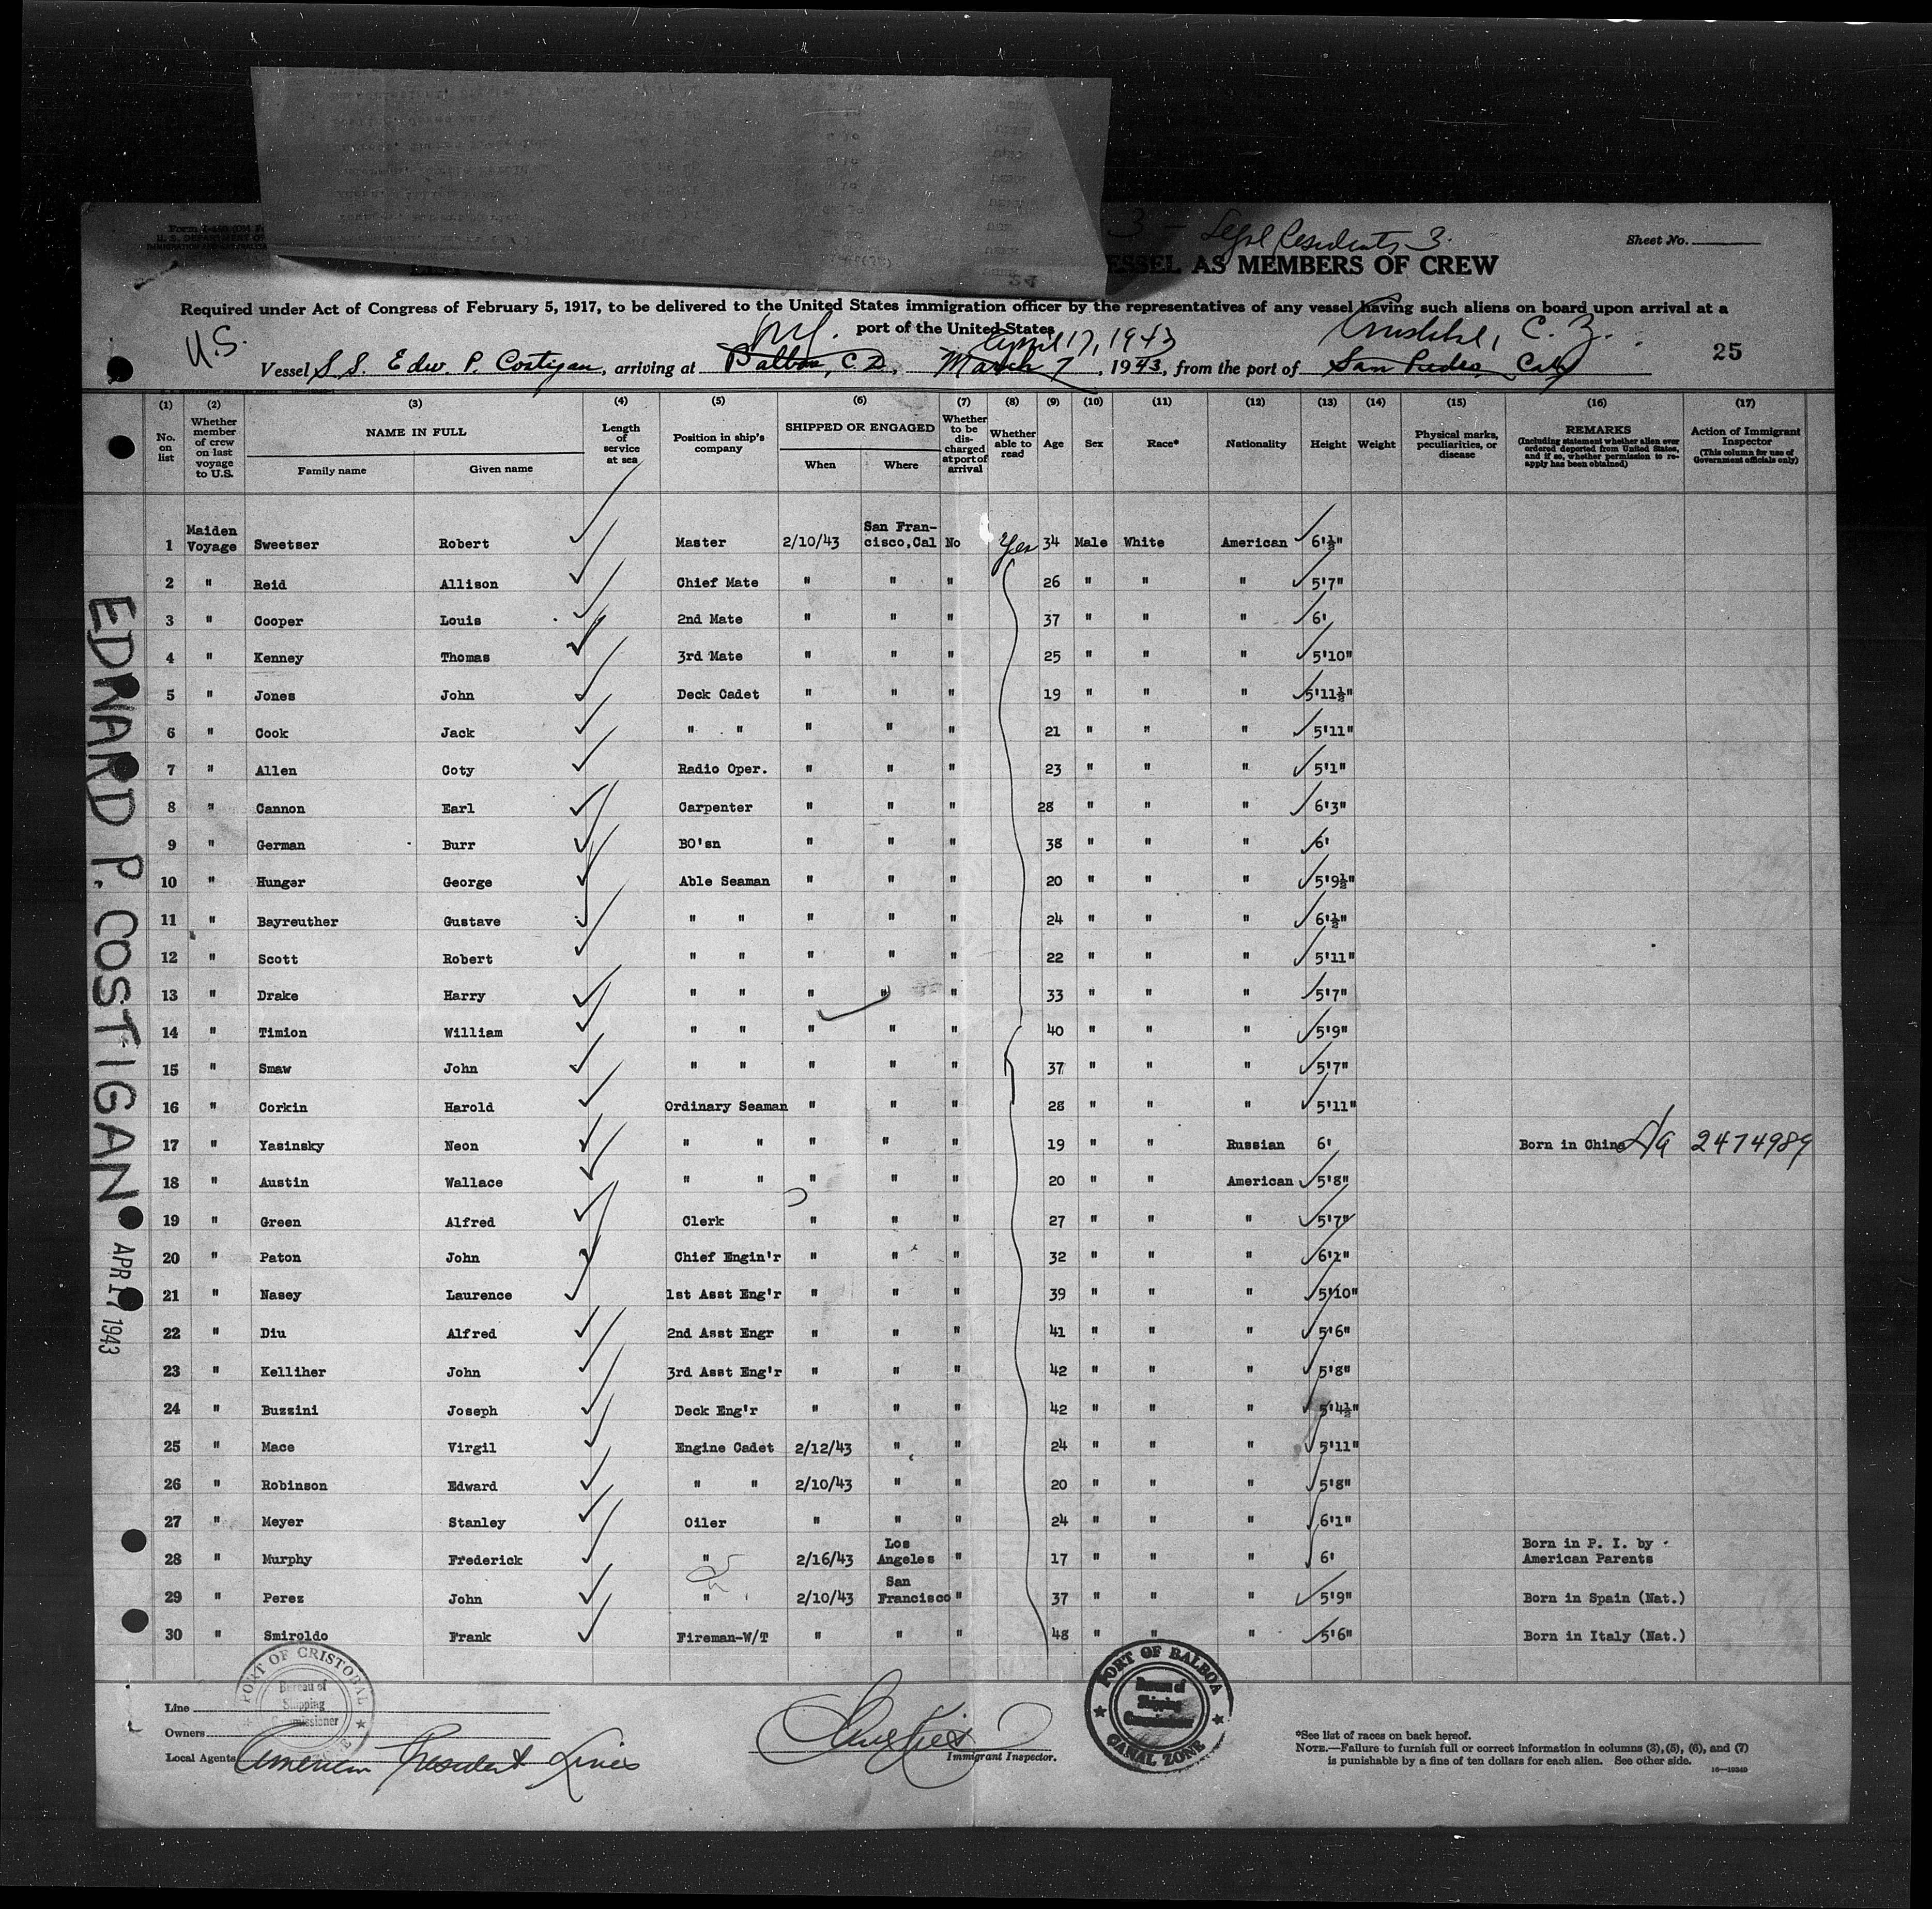 3 - Legal Residents 3.
Sheet No.
U. S. DEPARTMENT OF
ESSEL AS MEMBERS OF CREW
Required under Act of Congress of February 5, 1917, to be delivered to the United States immigration officer by the representatives of any vessel having such aliens on board upon arrival at a
port of the United States
U.S. April 17, 1943 Cristobal, C. Z.
Vessel S.S. Edw. P. Costigan, arriving at Balboa, C.Z., March 7, 1943, from the port of San Pedro, Cal
25
(1) (2) (3) (4) (5) (6) (7) (8) (9) (10) (11) (12) (13) (14) (15) (16) (17)
No. on list Whether member of crew on last voyage to U.S. NAME IN FULL Family name Given name Length of service at sea Position in ship's company SHIPPED OR ENGAGED When Where Whether to be discharged at port of arrival Whether able to read Age Sex Race* Nationality Height Weight Physical marks, peculiarities, or disease REMARKS (Including statement whether alien ever ordered deported from United States, and if so, whether permission to reapply has been obtained) Action of Immigrant Inspector (This column for use of Government officials only)
1 Maiden Voyage Sweetser Robert Master 2/10/43 San Francisco,Cal No Yes 34 Male White American 6'½"
2 " Reid Allison Chief Mate " " " 26 " " " 5'7"
3 " Cooper Louis 2nd Mate " " " 37 " " " 6'
4 " Kenney Thomas 3rd Mate " " " 25 " " " 5'10"
5 " Jones John Deck Cadet " " " 19 " " " 5'11½"
6 " Cook Jack " " " " " 21 " " " 5'11"
7 " Allen Coty Radio Oper. " " " 23 " " " 5'1"
8 " Cannon Earl Carpenter " " " 28 " " " 6'3"
9 " German Burr BO'sn " " " 38 " " " 6'
10 " Hunger George Able Seaman " " " 20 " " " 5'9½"
11 " Bayreuther Gustave " " " " " 24 " " " 6'½"
12 " Scott Robert " " " " " 22 " " " 5'11"
13 " Drake Harry " " " " " 33 " " " 5'7"
14 " Timion William " " " " " 40 " " " 5'9"
15 " Smaw John " " " " " 37 " " " 5'7"
16 " Corkin Harold Ordinary Seaman " " " 28 " " " 5'11"
17 " Yasinsky Neon " " " " " 19 " " Russian 6' Born in China 2474989
18 " Austin Wallace " " " " " 20 " " American 5'8"
19 " Green Alfred Clerk " " " 27 " " " 5'7"
20 " Paton John Chief Engin'r " " " 32 " " " 6'1"
21 " Nasey Laurence 1st Asst Eng'r " " " 39 " " " 5'10"
22 " Diu Alfred 2nd Asst Engr " " " 41 " " " 5'6"
23 " Kelliher John 3rd Asst Eng'r " " " 42 " " " 5'8"
24 " Buzzini Joseph Deck Eng'r " " " 42 " " " 5'4½"
25 " Mace Virgil Engine Cadet 2/12/43 " " 24 " " " 5'11"
26 " Robinson Edward " " 2/10/43 " " 20 " " " 5'8"
27 " Meyer Stanley Oiler " " " 24 " " " 6'1"
28 " Murphy Frederick " 2/16/43 Los Angeles " 17 " " " 6' Born in P. I. by American Parents
29 " Perez John " 2/10/43 San Francisco " 37 " " " 5'9" Born in Spain (Nat.)
30 " Smiroldo Frank Fireman-W/T " " " 48 " " " 5'6" Born in Italy (Nat.)
EDWARD P. COSTIGAN
APR 17 1943
Line
Owners
Local Agents American President Lines
PORT OF CRISTOBAL
Bureau of
Shipping
Commissioner
Immigrant Inspector.
PORT OF BALBOA
Bureau of
Shipping
Commissioner
CANAL ZONE
*See list of races on back hereof.
NOTE.—Failure to furnish full or correct information in columns (3), (5), (6), and (7)
is punishable by a fine of ten dollars for each alien. See other side.